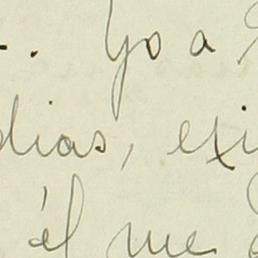 . Yo a
dias, exi
él me